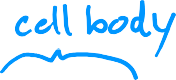 cell body